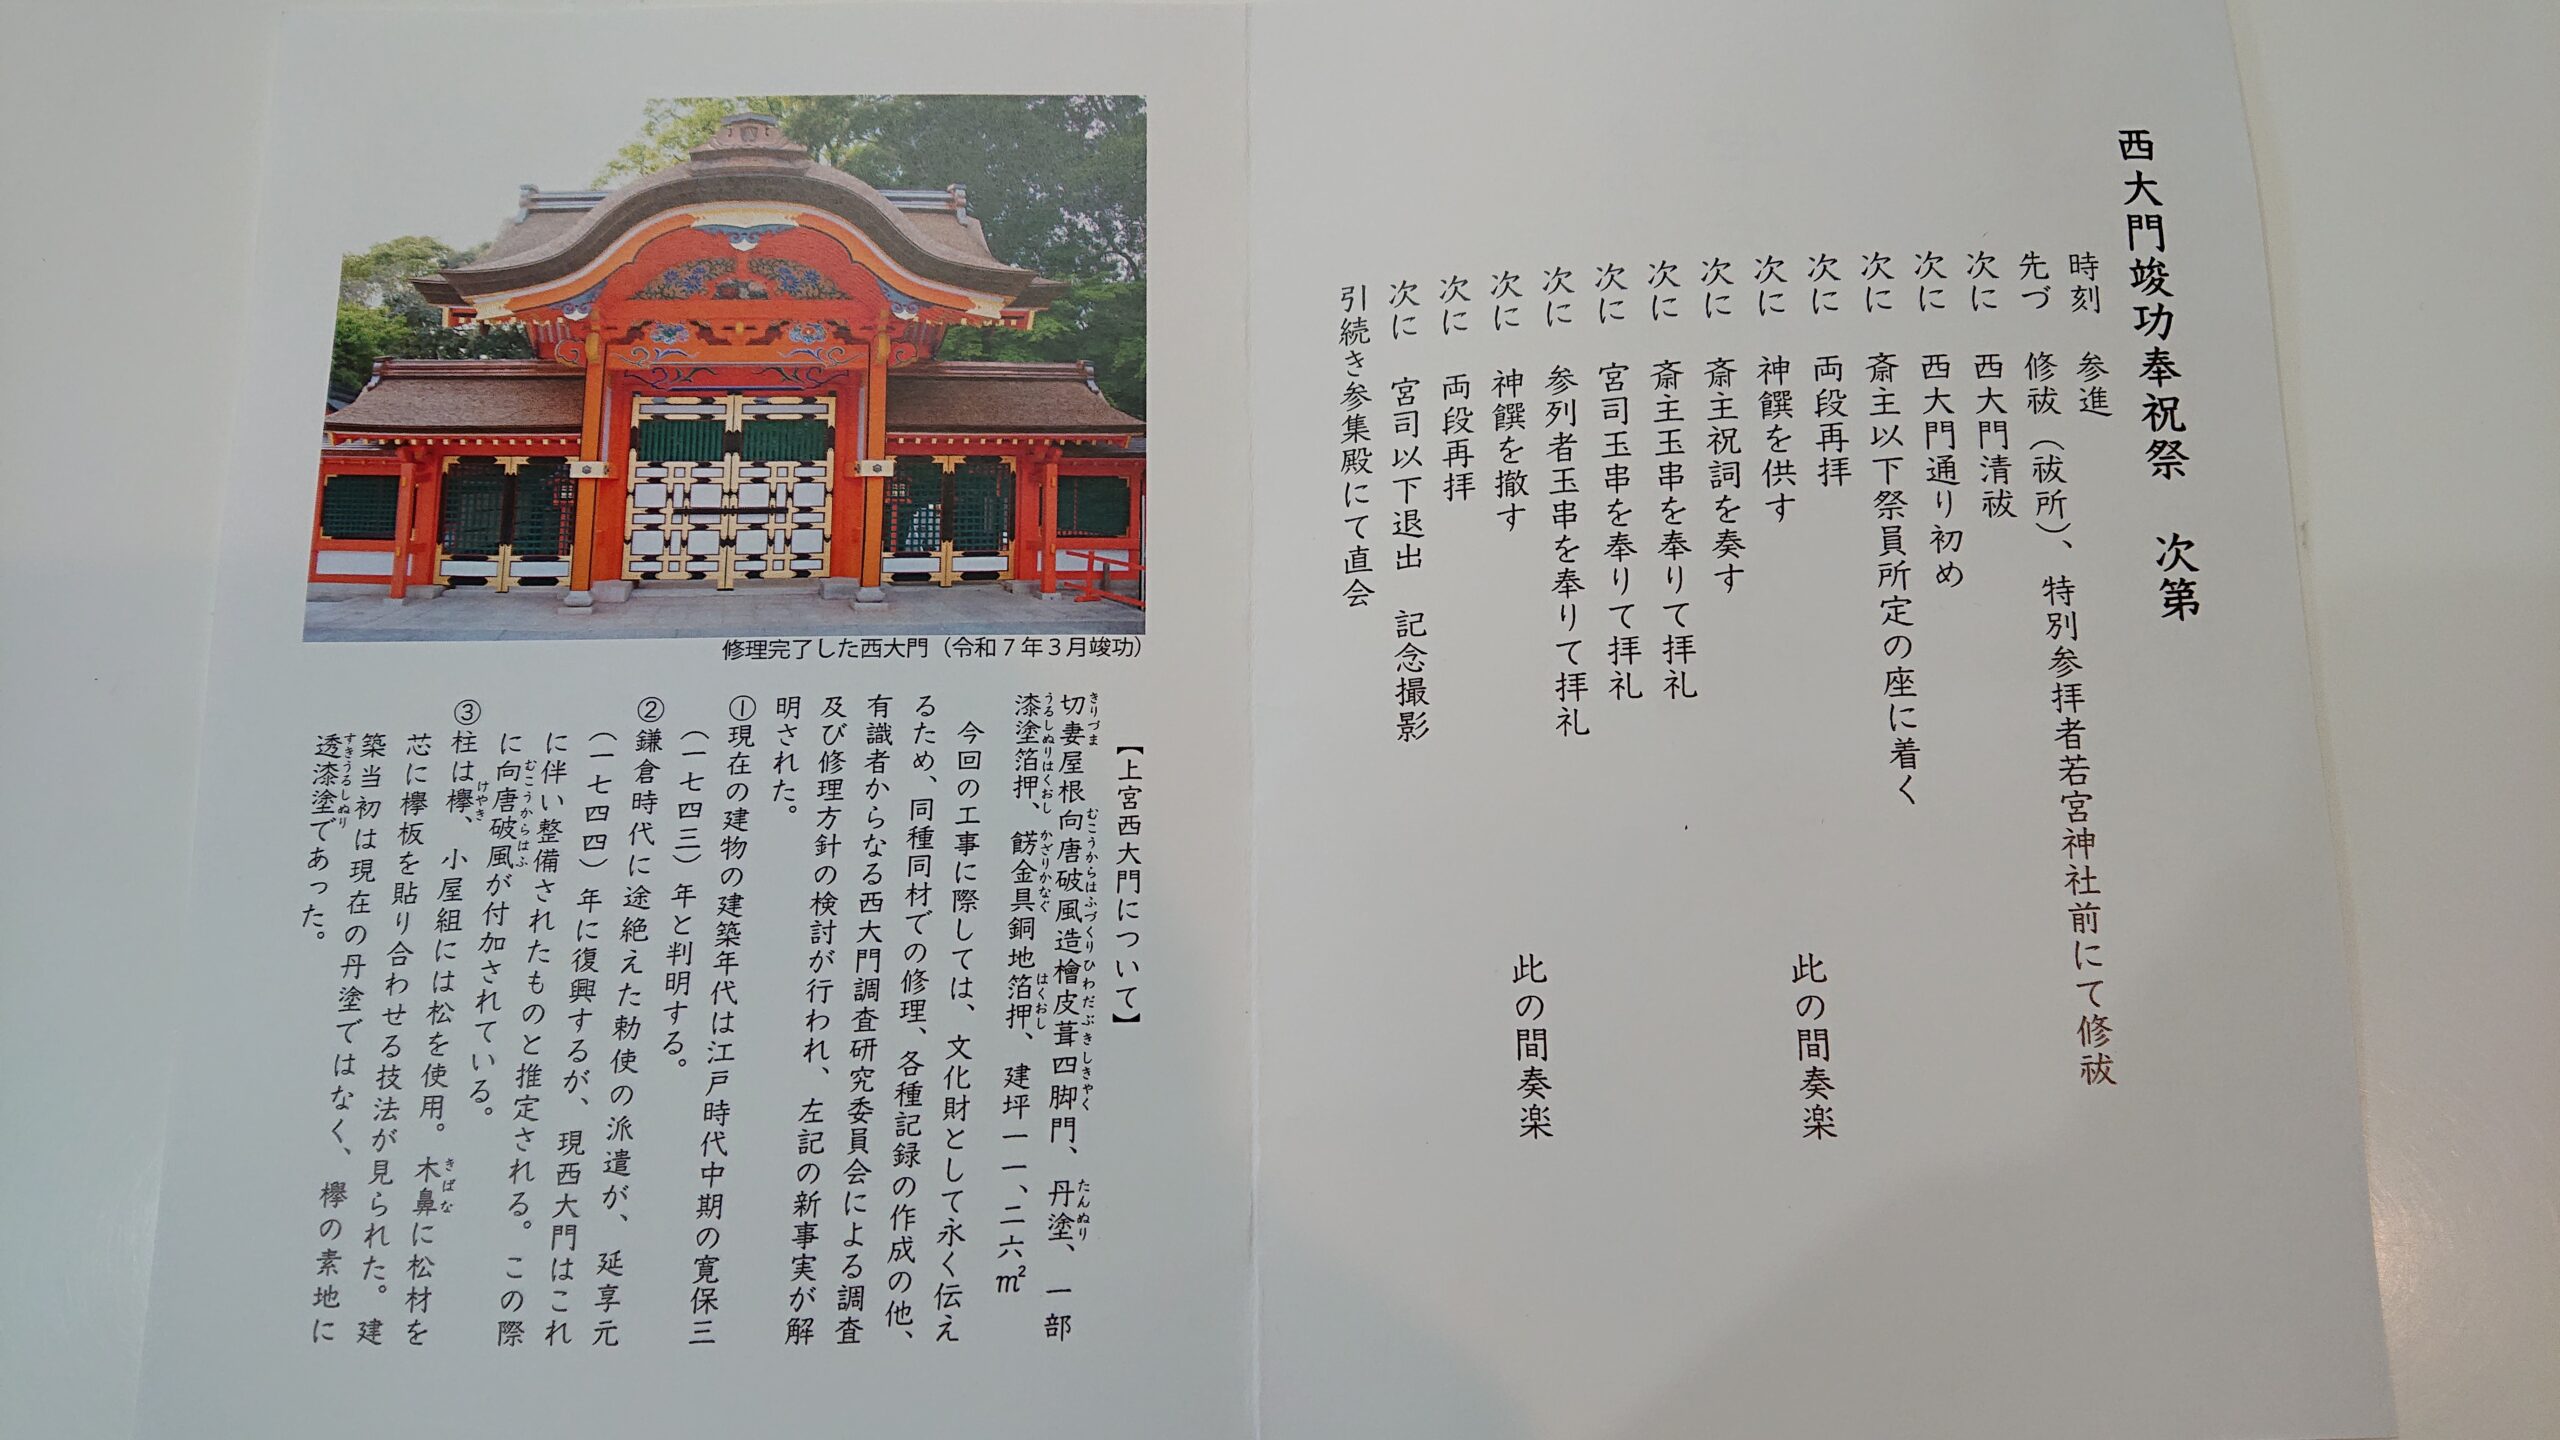 西大門竣功奉祝祭　次第
時刻　参進
先づ　修祓（祓所）、特別参拝者若宮神社前にて修祓
次に　西大門清祓
次に　西大門通り初め
次に　斎主以下祭員所定の座に着く
次に　両段再拝
次に　神饌を供す　此の間奏楽
次に　斎主祝詞を奏す
次に　斎主玉串を奉りて拝礼
次に　宮司玉串を奉りて拝礼
次に　参列者玉串を奉りて拝礼
次に　神饌を撤す　此の間奏楽
次に　両段再拝
次に　宮司以下退出　記念撮影
引続き参集殿にて直会
修理完了した西大門（令和７年３月竣功）
【上宮西大門について】
切妻屋根向唐破風造檜皮葺四脚門、丹塗、一部
きりづま　むこうからはふづくりひわだぶきしきゃく　たんぬり
漆塗箔押、餝金具銅地箔押、建坪一一、二六㎡
うるしぬりはくおし　かざりかなぐ　はくおし
今回の工事に際しては、文化財として永く伝え
るため、同種同材での修理、各種記録の作成の他、
有識者からなる西大門調査研究委員会による調査
及び修理方針の検討が行われ、左記の新事実が解
明された。
①現在の建物の建築年代は江戸時代中期の寛保三
（一七四三）年と判明する。
②鎌倉時代に途絶えた勅使の派遣が、延享元
（一七四四）年に復興するが、現西大門はこれ
に伴い整備されたものと推定される。この際
に向唐破風が付加されている。
むこうからはふ
③柱は欅、小屋組には松を使用。木鼻に松材を
けやき　きばな
芯に欅板を貼り合わせる技法が見られた。建
築当初は現在の丹塗ではなく、欅の素地に
透漆塗であった。
すきうるしぬり